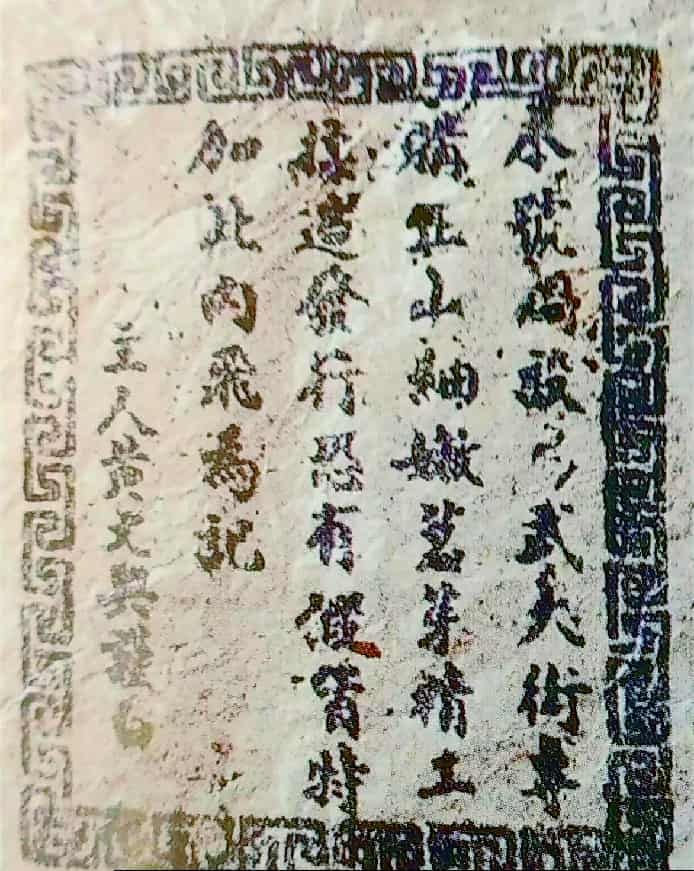 本號開設易武大街專
購正山細嫩茗芽精工
揉造發行恐有假冒特
加此內飛為記
主人黃文興謹白